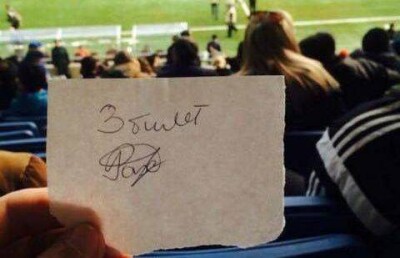 3 билет